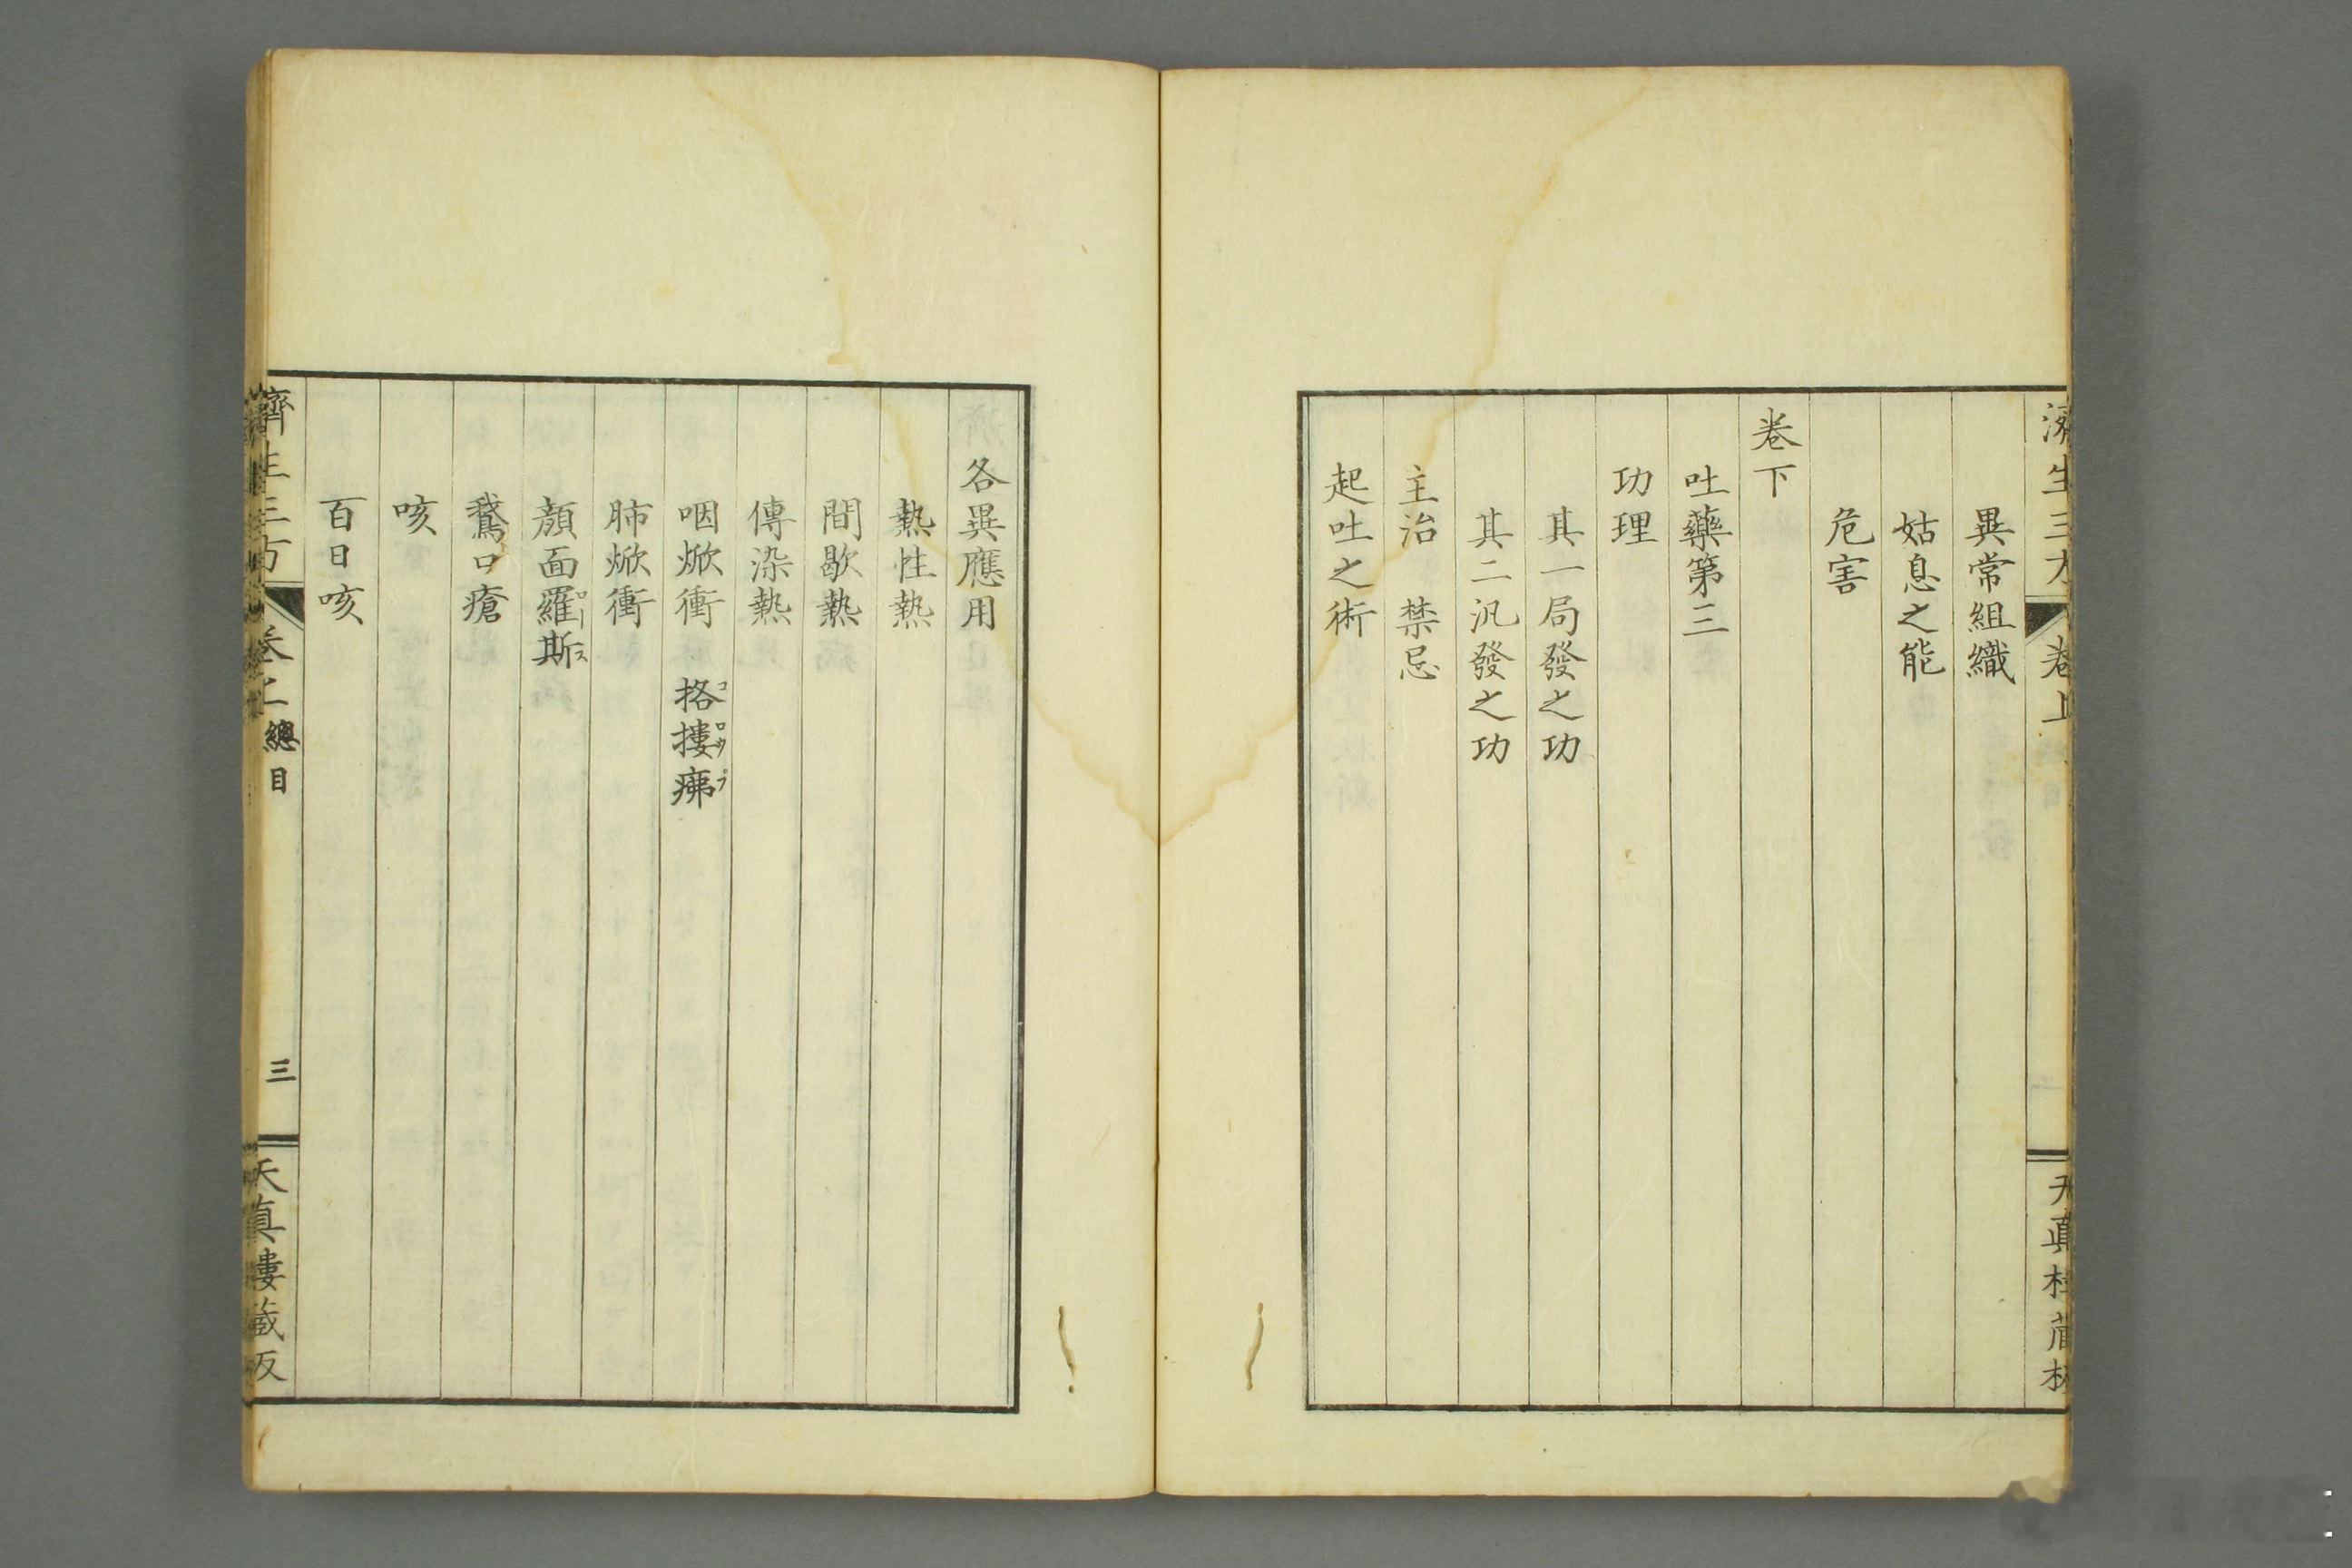 濟生三方 卷上 二 天真樓藏板
異常組織
姑息之能
危害
卷下
吐藥第三
功理
其一局發之功
其二汎發之功
主治 禁忌
起吐之術
各異應用
熱性熱
間歇熱
傳染熱
咽焮衝 挌摟疿コロウプ
肺焮衝
顏面羅斯ロース
鵞口瘡
咳
百日咳
濟生三方 卷上 總目 三 天真樓藏板